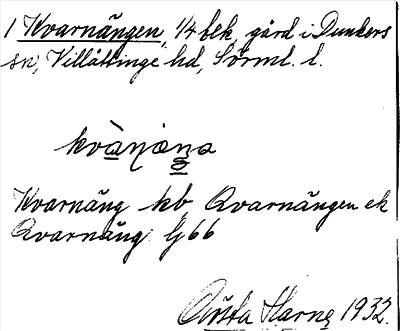 1 Kvarnängen, 1/4 bek, gård i Dunkers
sn, Villåttinge hd, Sörml. l.
kvànæṉa
Kvarnäng kb, Qvarnängen ek
Qvarnäng Gj 66
Gösta Harne 1932.